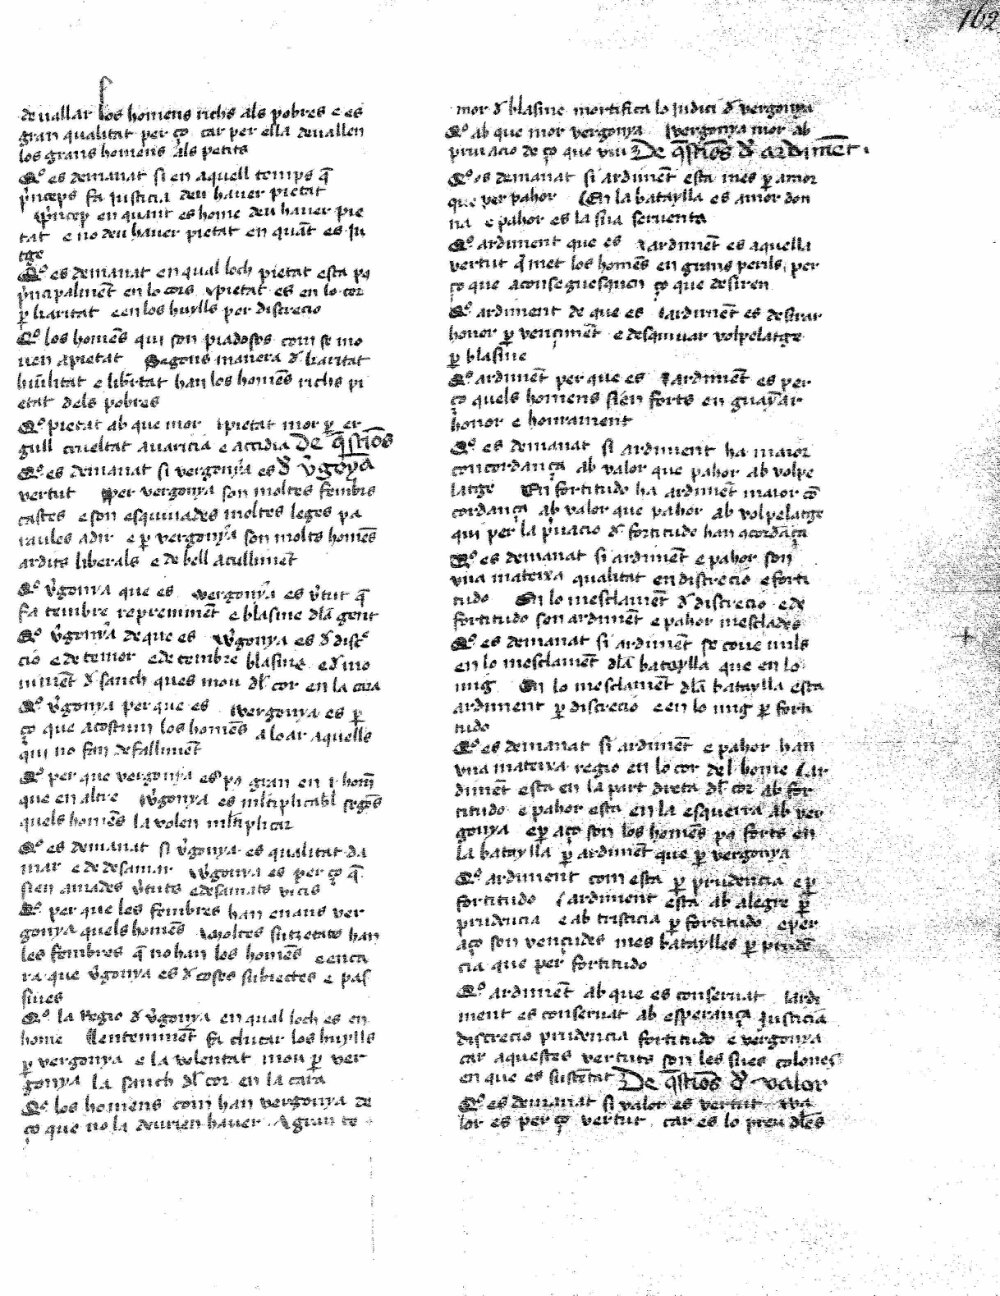 162
deuallar los homens richs als pobres e es
gran qualitat per ço car per ella deuallen
los grans homens als petits
Qo es demanat si en aquell temps q̄
p̃nceps fa justicia deu hauer pietat
p̃ncep en quant es home deu hauer pie
tat e no deu hauer pietat en quāt es ju
tge
Qo es demanat en qual loch pietat esta pꝰ
p̃ncipalmēt en lo cors pietat es en lo cor
p̱ karitat e en los huylls per discrecio
Qo los homēs qui son piadosos com se mo
uen apietat Segons manera d̄ karitat
humilitat e lib̄tat han los homēs richs pi
etat dels pobres
Qo pietat ab que mor pietat mor p̱ er
gull crueltat auaricia e accidia De q̄stiōs
Qo es demanat si vergonya es d̄ v̄goya
vertut per vergonya son moltes fembres
castes e son esquiuades moltes leges pa
raules a dir e p̱ vergonya son molts homēs
ardits liberals e de bell aculliment
Qo v̄gonya que es vergonya es v̄tut q̄
fa tembre reprenimēt e blasme dla gent
Qo v̄gonya de que es v̄gonya es d̄ disc̄
cio e de temor e de tembre blasme e d̄ mo
uimēt d̄ sanch ques mou dl cor en la cara
Qo v̄gonya per que es vergonya es p̱
ço que acostum los homēs a loar aquells
qui no fan defalliment
Qo per que vergonya es pꝰ gran en i hom̄
que en altre v̄gonya es mltiplicabl segōs
quels homēs la volen mltiplicar
Qo es demanat si v̄gonya es qualitat da
mar e de desamar v̄gonya es per ço q̄
sien amades v̄tuts e desamats vicis
Qo per que les fembres han enans ver
gonya quels homēs moltes sutzetats han
les fembres q̄ no han los homēs e enca
ra que v̄gonya es d̄ coses subiectes e pas
siues
Qo la Regio d̄ v̄gonya en qual loch es en
home lenteniment fa clucar los huylls
p̱ vergonya e la volentat mou p̱ ver
gonya la sanch dl cor en la cara
Qo los homens com han vergonya de
ço que no la deurien hauer A gran te
mor d̄ blasme mortifica lo judici d̄ vergonya
Qo ab que mor vergonya vergonya mor ab
priuacio de ço que viu De q̄stiōs d̄ ardimēt
Qo es demanat si ardimēt esta mes p̱ amor
que per pahor En la bataylla es amor don
na e pahor es la sua seruenta
Qo ardiment que es ardimēt es aquella
vertut q̄ met los homēs en grans perils per
ço que aconseguesquen ço que desiren
Qo ardiment de que es ardimēt es desirar
honor p̱ vencimēt e desquiuar volpelatge
p̱ blasme
Qo ardimēt per que es ardimēt es per
ço quels homens sien forts en guayar
honor e honrament
Qo es demanat si ardiment ha maior
concordança ab valor que pahor ab volpe
latge En fortitudo ha ardimēt maior cō
cordança ab valor que pahor ab volpelatge
qui per la p̃uacio d̄ fortitudo han acordāça
Qo es demanat si ardimēt e pahor son
vna mateixa qualitat en discrecio e forti
tudo En lo mesclamēt d̄ discrecio e de
fortitudo son ardimēt e pahor mesclades
Qo es demanat si ardimēt se coue mils
en lo mesclamēt dla batoylla que en lo
mig En lo mesclamēt dla bataylla esta
ardiment p̱ discrecio e en lo mig p̱ forti
tudo
Qo es demanat si ardimēt e pahor han
vna mateixa regio en lo cor del home Car
dimēt esta en la part dreta dl cor ab for
titudo e pahor esta en la esquerra ab ver
gonya e p̱ aço son los homēs pꝰ forts en
la bataylla p̱ ardimēt que p̱ vergonya
Qo ardiment com esta p̱ prudencia e p̱
fortitudo Cardiment esta ab alegre p̱
prudencia e ab tristicia p̱ fortitudo e per
aço son vençudes mes bataylles p̱ prudē
cia que per fortitudo
Qo ardimēt ab que es conseruat lardi
ment es conseruat ab esperança justicia
discrecio prudencia fortitudo e vergonya
car aquestes vertuts son les sues colones
en que es sustētat De q̄stiōs d̄ valor
Qo es demanat si valor es vertut va
lor es per ço vertut car es lo preu dles